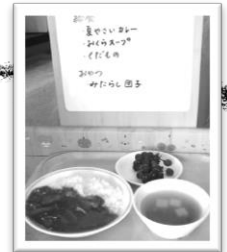 給食
・夏やさいカレー
・おくらスープ
・くだもの
おやつ
みたらし団子